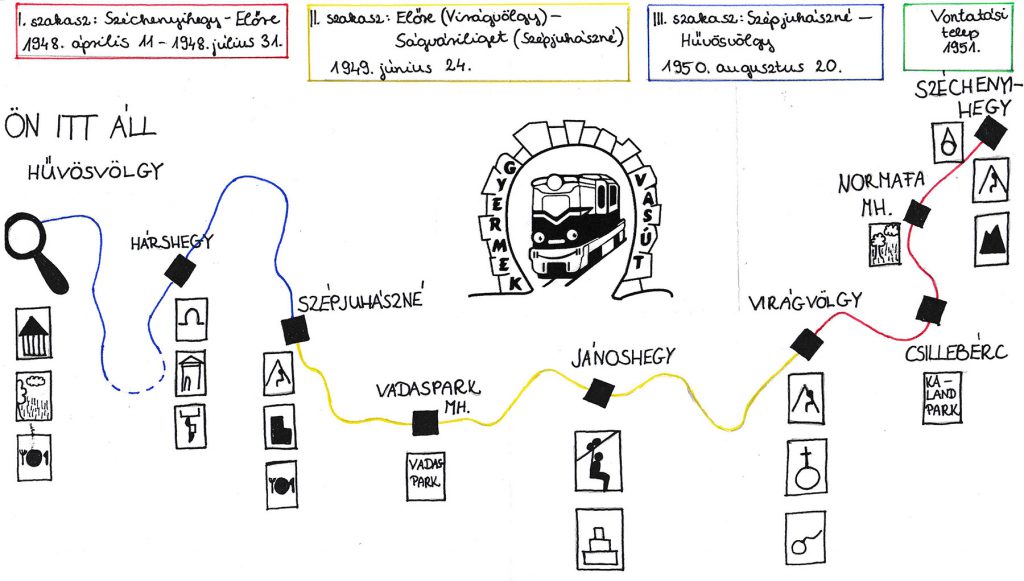 I. szakasz: Széchenyihegy - Előre
1948. április 11 - 1948. július 31.
II. szakasz: Előre (Virágvölgy) -
Ságváriliget (Szépjuhászné)
1949. június 24.
III. szakasz: Szépjuhászné -
Hűvösvölgy
1950. augusztus 20.
Vontatási
telep
1951.
ÖN ITT ÁLL
HŰVÖSVÖLGY
HÁRSHEGY
SZÉPJUHÁSZNÉ
VADASPARK
MH.
VADAS
PARK
GYERMEK
VASÚT
JÁNOSHEGY
VIRÁGVÖLGY
CSILLEBÉRC
KA-
LAND
PARK
NORMAFA
MH.
SZÉCHENYI-
HEGY